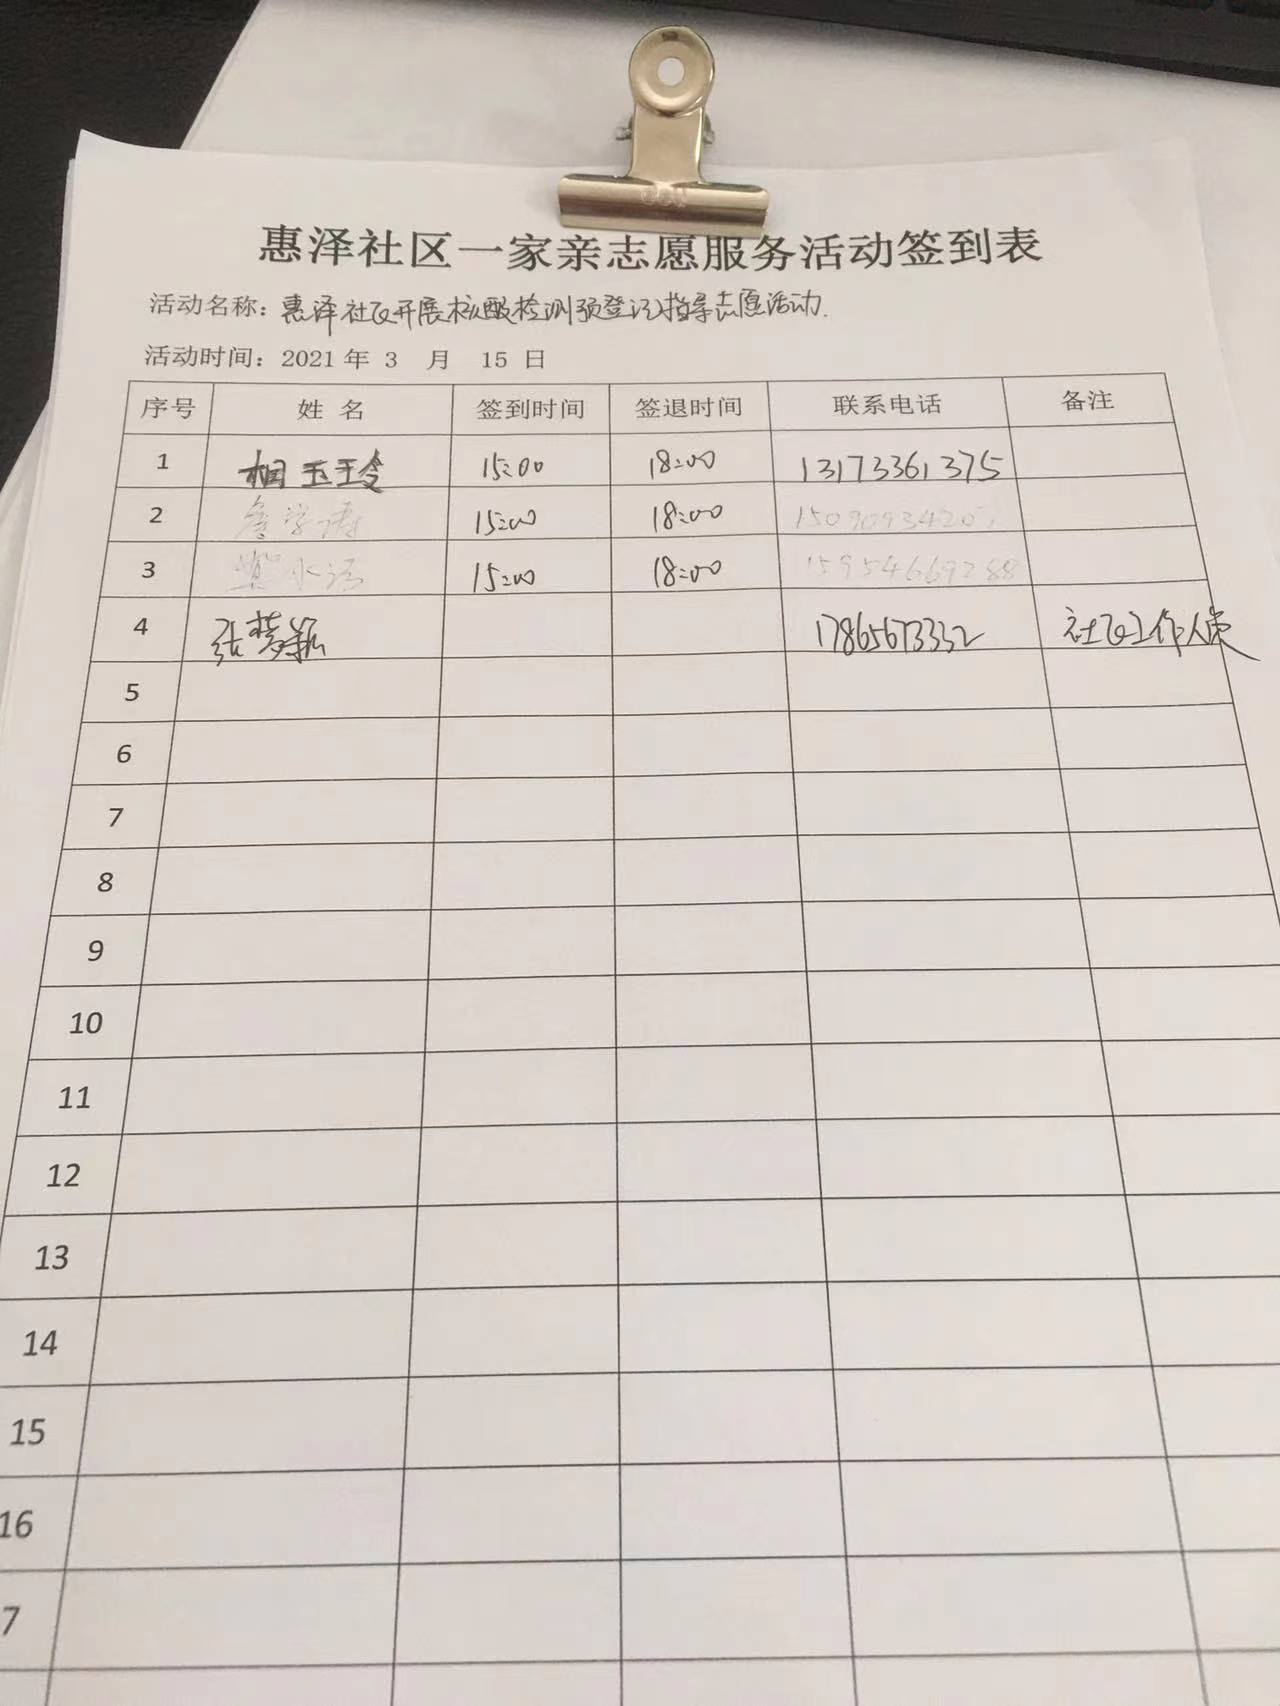 惠泽社区一家亲志愿服务活动签到表
活动名称：惠泽社区开展核酸检测预登记指导志愿活动.
活动时间：2021 年 3 月 15 日
序号 姓 名 签到时间 签退时间 联系电话 备注
1 相玉玲 15:00 18:00 13173361375
2 15:00 18:00
3 15:00 18:00 15954669288
4 张梦颖 17865673332 社区工作人员
5
6
7
8
9
10
11
12
13
14
15
16
7